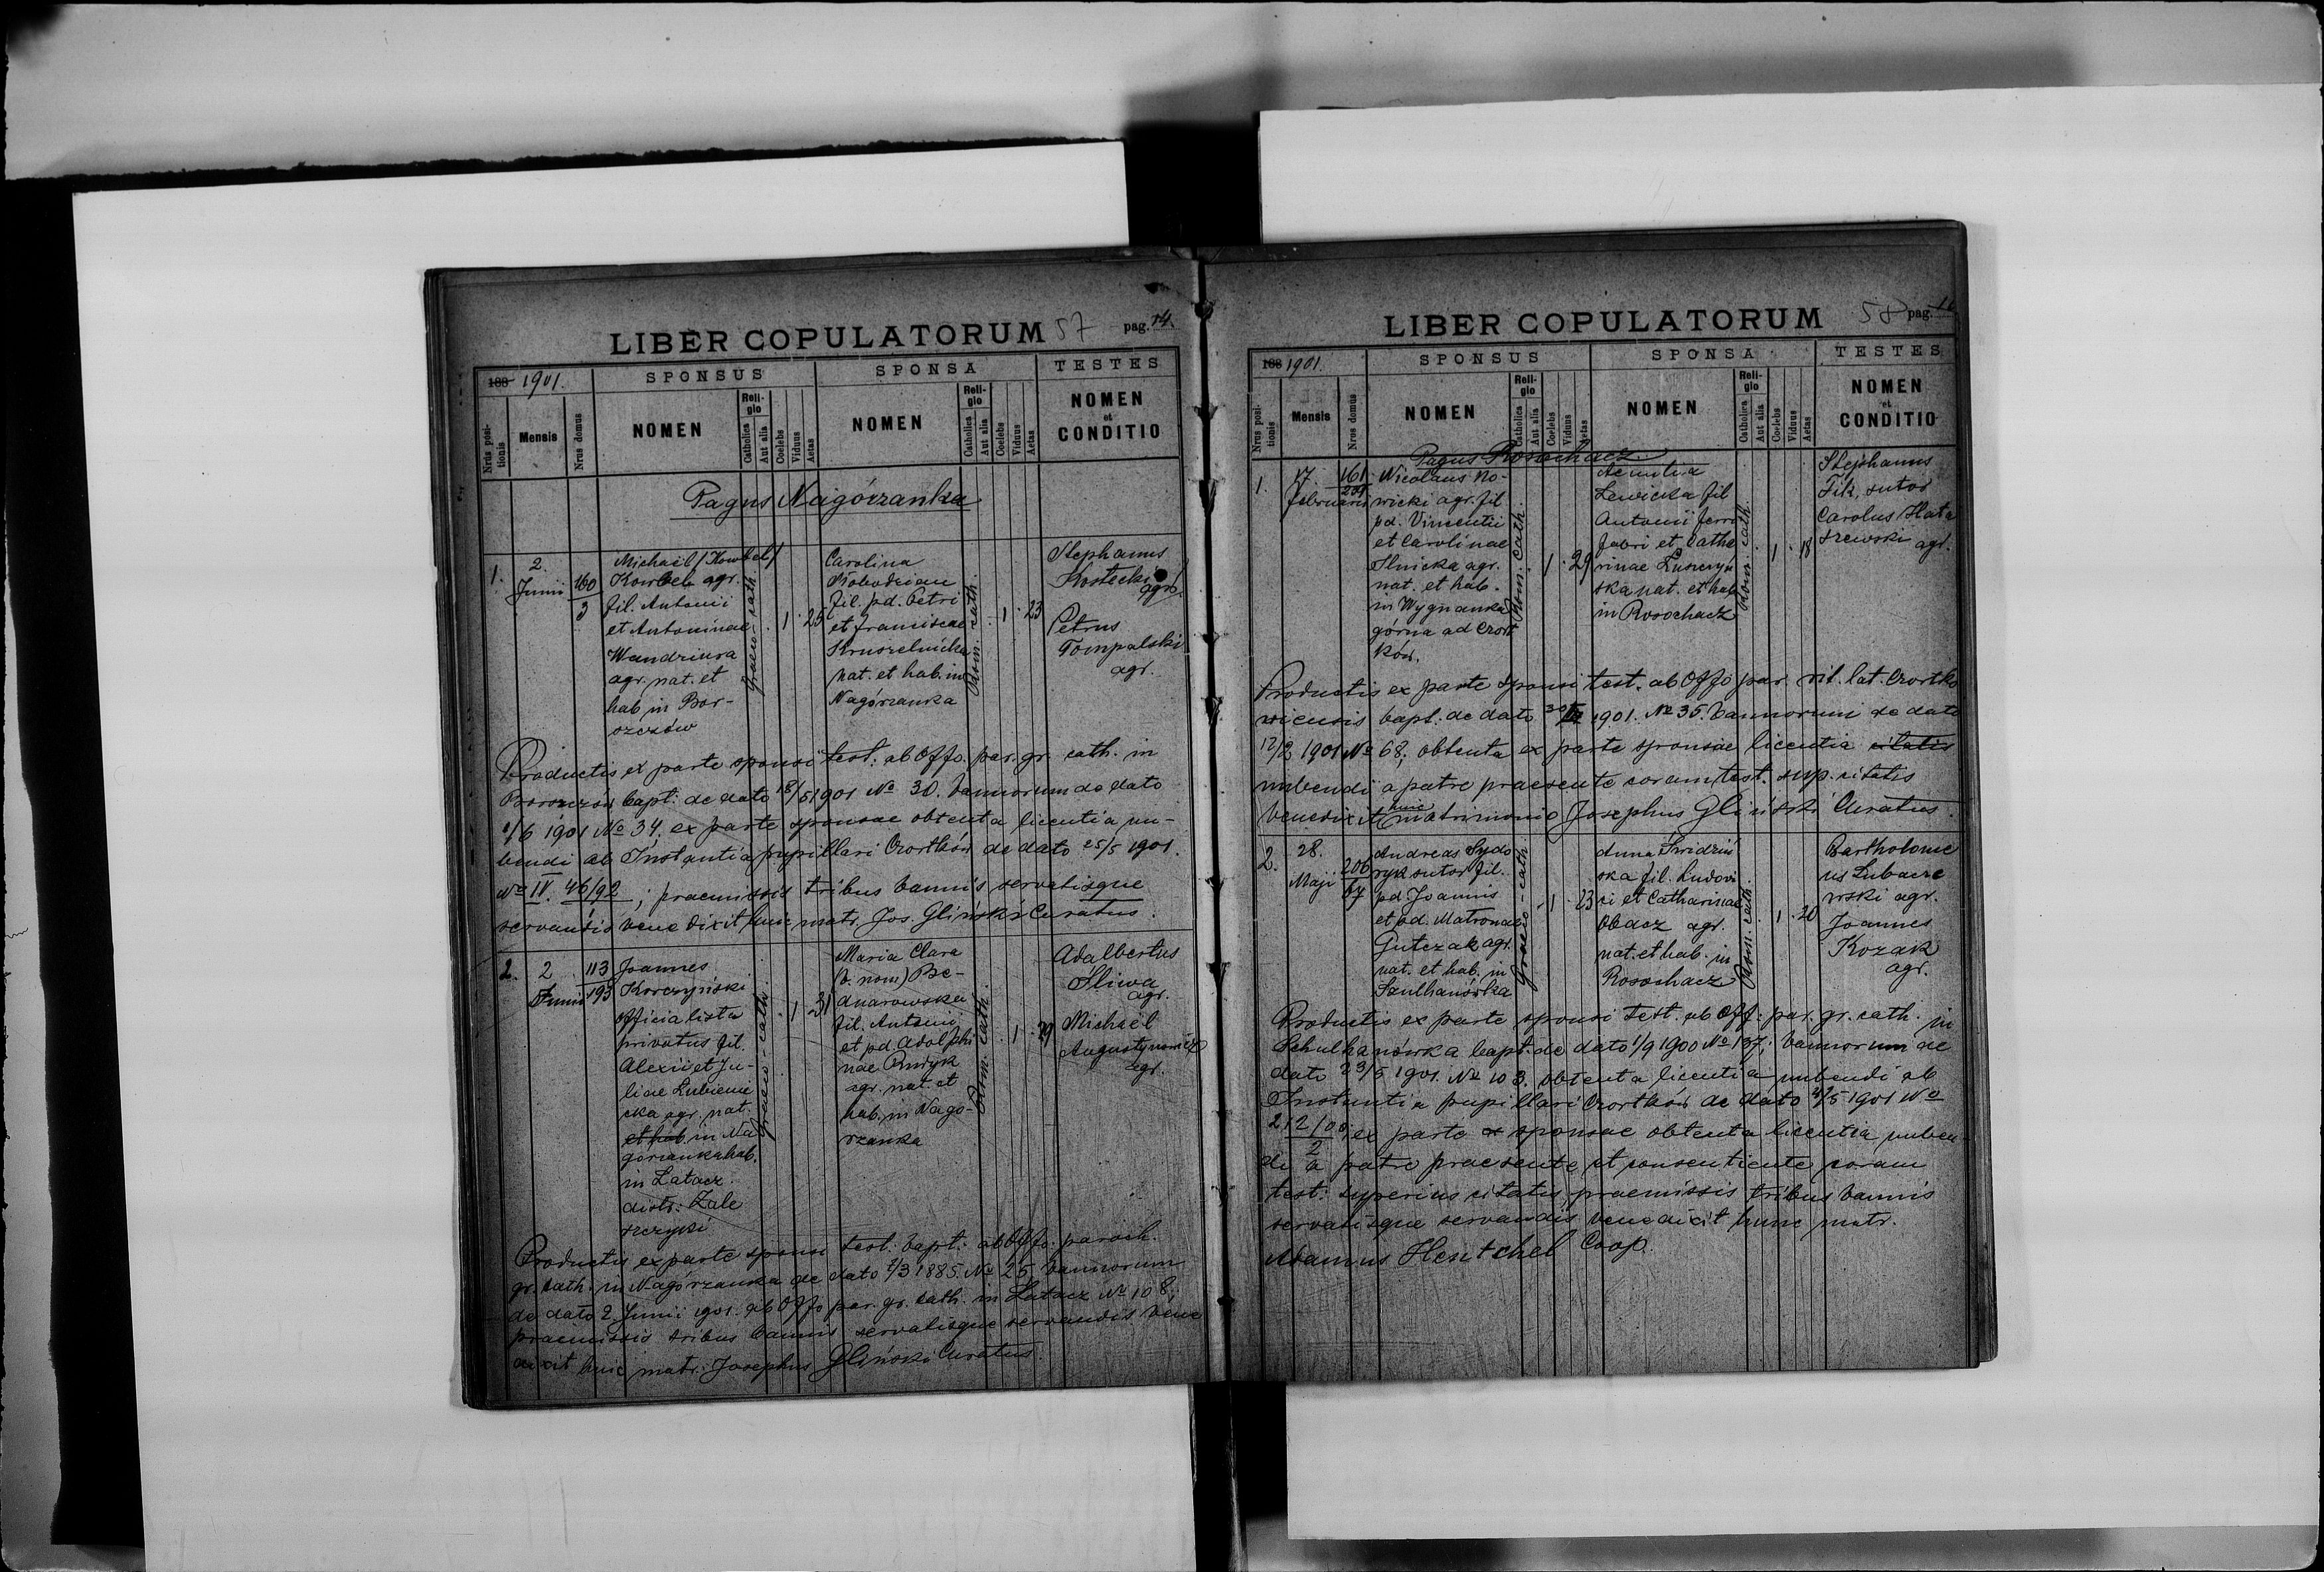 LIBER COPULATORUM 57 pag. 14.
188 1901.
SPONSUS
SPONSA
TESTES
Nrus posi-
tionis
Mensis
Nrus domus
NOMEN
Reli-
gio
Catholica
Aut alia
Coelebs
Viduus
Aetas
NOMEN
Reli-
gio
Catholica
Aut alia
Coelebs
Viduus
Aetas
NOMEN
et
CONDITIO
Pagus Nagórzanka
1.
2.
Junii
160
3
Michael /Kowbel/
Kowbel agr.
fil. Antonii
et Antoninae
Wandziura
agr. nat. et
hab in Bor-
szczów
Graeco-cath.
1 25
Carolina
fil. pd. Petri
et Franciscae
Kruszelnicka
nat. et hab. in
Nagórzanka
Rom. cath.
1 23
Stephanus
Kostecki
agr.
Petrus
Tompalski
agr.
Productis ex parte sponsi test. ab Offo. par. gr. cath. in
Borszczów bapt. de dato 18/5 1901 No 30. bannorum de dato
1/6 1901 No 34. ex parte sponsae obtenta licentia nu-
bendi ab Instantia pupillari Czortków de dato 25/5 1901.
No IV. 46/92; praemissis tribus bannis servatisque
servandis benedixit huic matr. Jos. Gliński Curatus.
2.
2
Junii
113
193
Joannes
Korczyński
officialista
privatus fil.
Alexii et Ju-
liae Lubieniec
cka agr. nat.
et hab. in Na
górzanka hab.
in Latacz
distr. Zale
szczyki
Graeco-cath.
1 31
Maria Clara
(b. nom) Be-
dnarowska
fil. Antonii
et pd. Adolphi
nae Rudyk
agr. nat. et
hab. in Nagó-
rzanka
Rom. cath.
1 29
Adalbertus
Śliwa
agr.
Michaël
Augustynowicz
agr.
Productis ex parte sponsi test. bapt. ab Offo. paroch.
gr. cath. in Nagórzanka de dato 7/3 1885. No 25 bannorum
de dato 2 Junii 1901. ab Offo par. gr. cath. in Latacz No 108;
praemissis tribus bannis servatisque servandis bene
dixit huic matr. Josephus Gliński Curatus.
LIBER COPULATORUM 58 pag.
188 1901.
SPONSUS
SPONSA
TESTES
Nrus posi-
tionis
Mensis
Nrus domus
NOMEN
Reli-
gio
Catholica
Aut alia
Coelebs
Viduus
Aetas
NOMEN
Reli-
gio
Catholica
Aut alia
Coelebs
Viduus
Aetas
NOMEN
et
CONDITIO
Pagus Rosochacz
1.
17.
Februarii
161
Nicolaus No-
wicki agr. fil
pd. Vincentii
et Carolinae
Ilnicka agr.
nat. et hab.
in Wygnanka
górna ad Czort
ków.
Rom. cath.
1 29
Lewicka fil
Antonii ferri
fabri et Catha
rinae Luszczyń
ska nat. et hab
in Rosochacz
Rom. cath.
1 18
Stephanus
Fik, sutor
Carolus Hata
szewski agr.
Productis ex parte sponsi test. ab Offo par. rit. lat. Czortko
wiensis bapt. de dato 1901. No 35. bannorum de dato
17/2 1901 No 68; obtenta ex parte sponsae licentia citatis
nubendi a patre praesente coram test. sup. citatis
benedixit huic matrimonio Josephus Gliński Curatus.
2.
28.
Maji
206
67
Andreas Sydo
ryk sutor fil.
pd. Joannis
et pd. Matronae
Gutczak agr.
nat. et hab. in
Szulhanówka
Graeco-cath
1 23
Anna Świdziń
ska fil. Ludovi
ci et Catharinae
Obacz agr.
nat. et hab. in
Rosochacz
Rom. cath.
1 20
Bartholome
us Lubacze
wski agr.
Joannes
Kozak
agr.
Productis ex parte sponsi test. ab Off. par. gr. cath. in
Schulhanówka bapt. de dato 1/9 1900 No 137; bannorum de
dato 23/5 1901. No 103. obtenta licentia nubendi ab
Instantia pupillari Czortków de dato 4/5 1901 No
212/00
2
; ex parte sponsae obtenta licentia nuben-
di a patre praesente et consentiente coram
test. superius citatis, praemissis tribus bannis
servatisque servandis benedixit hunc matr.
Adamus Hentschel Coop.